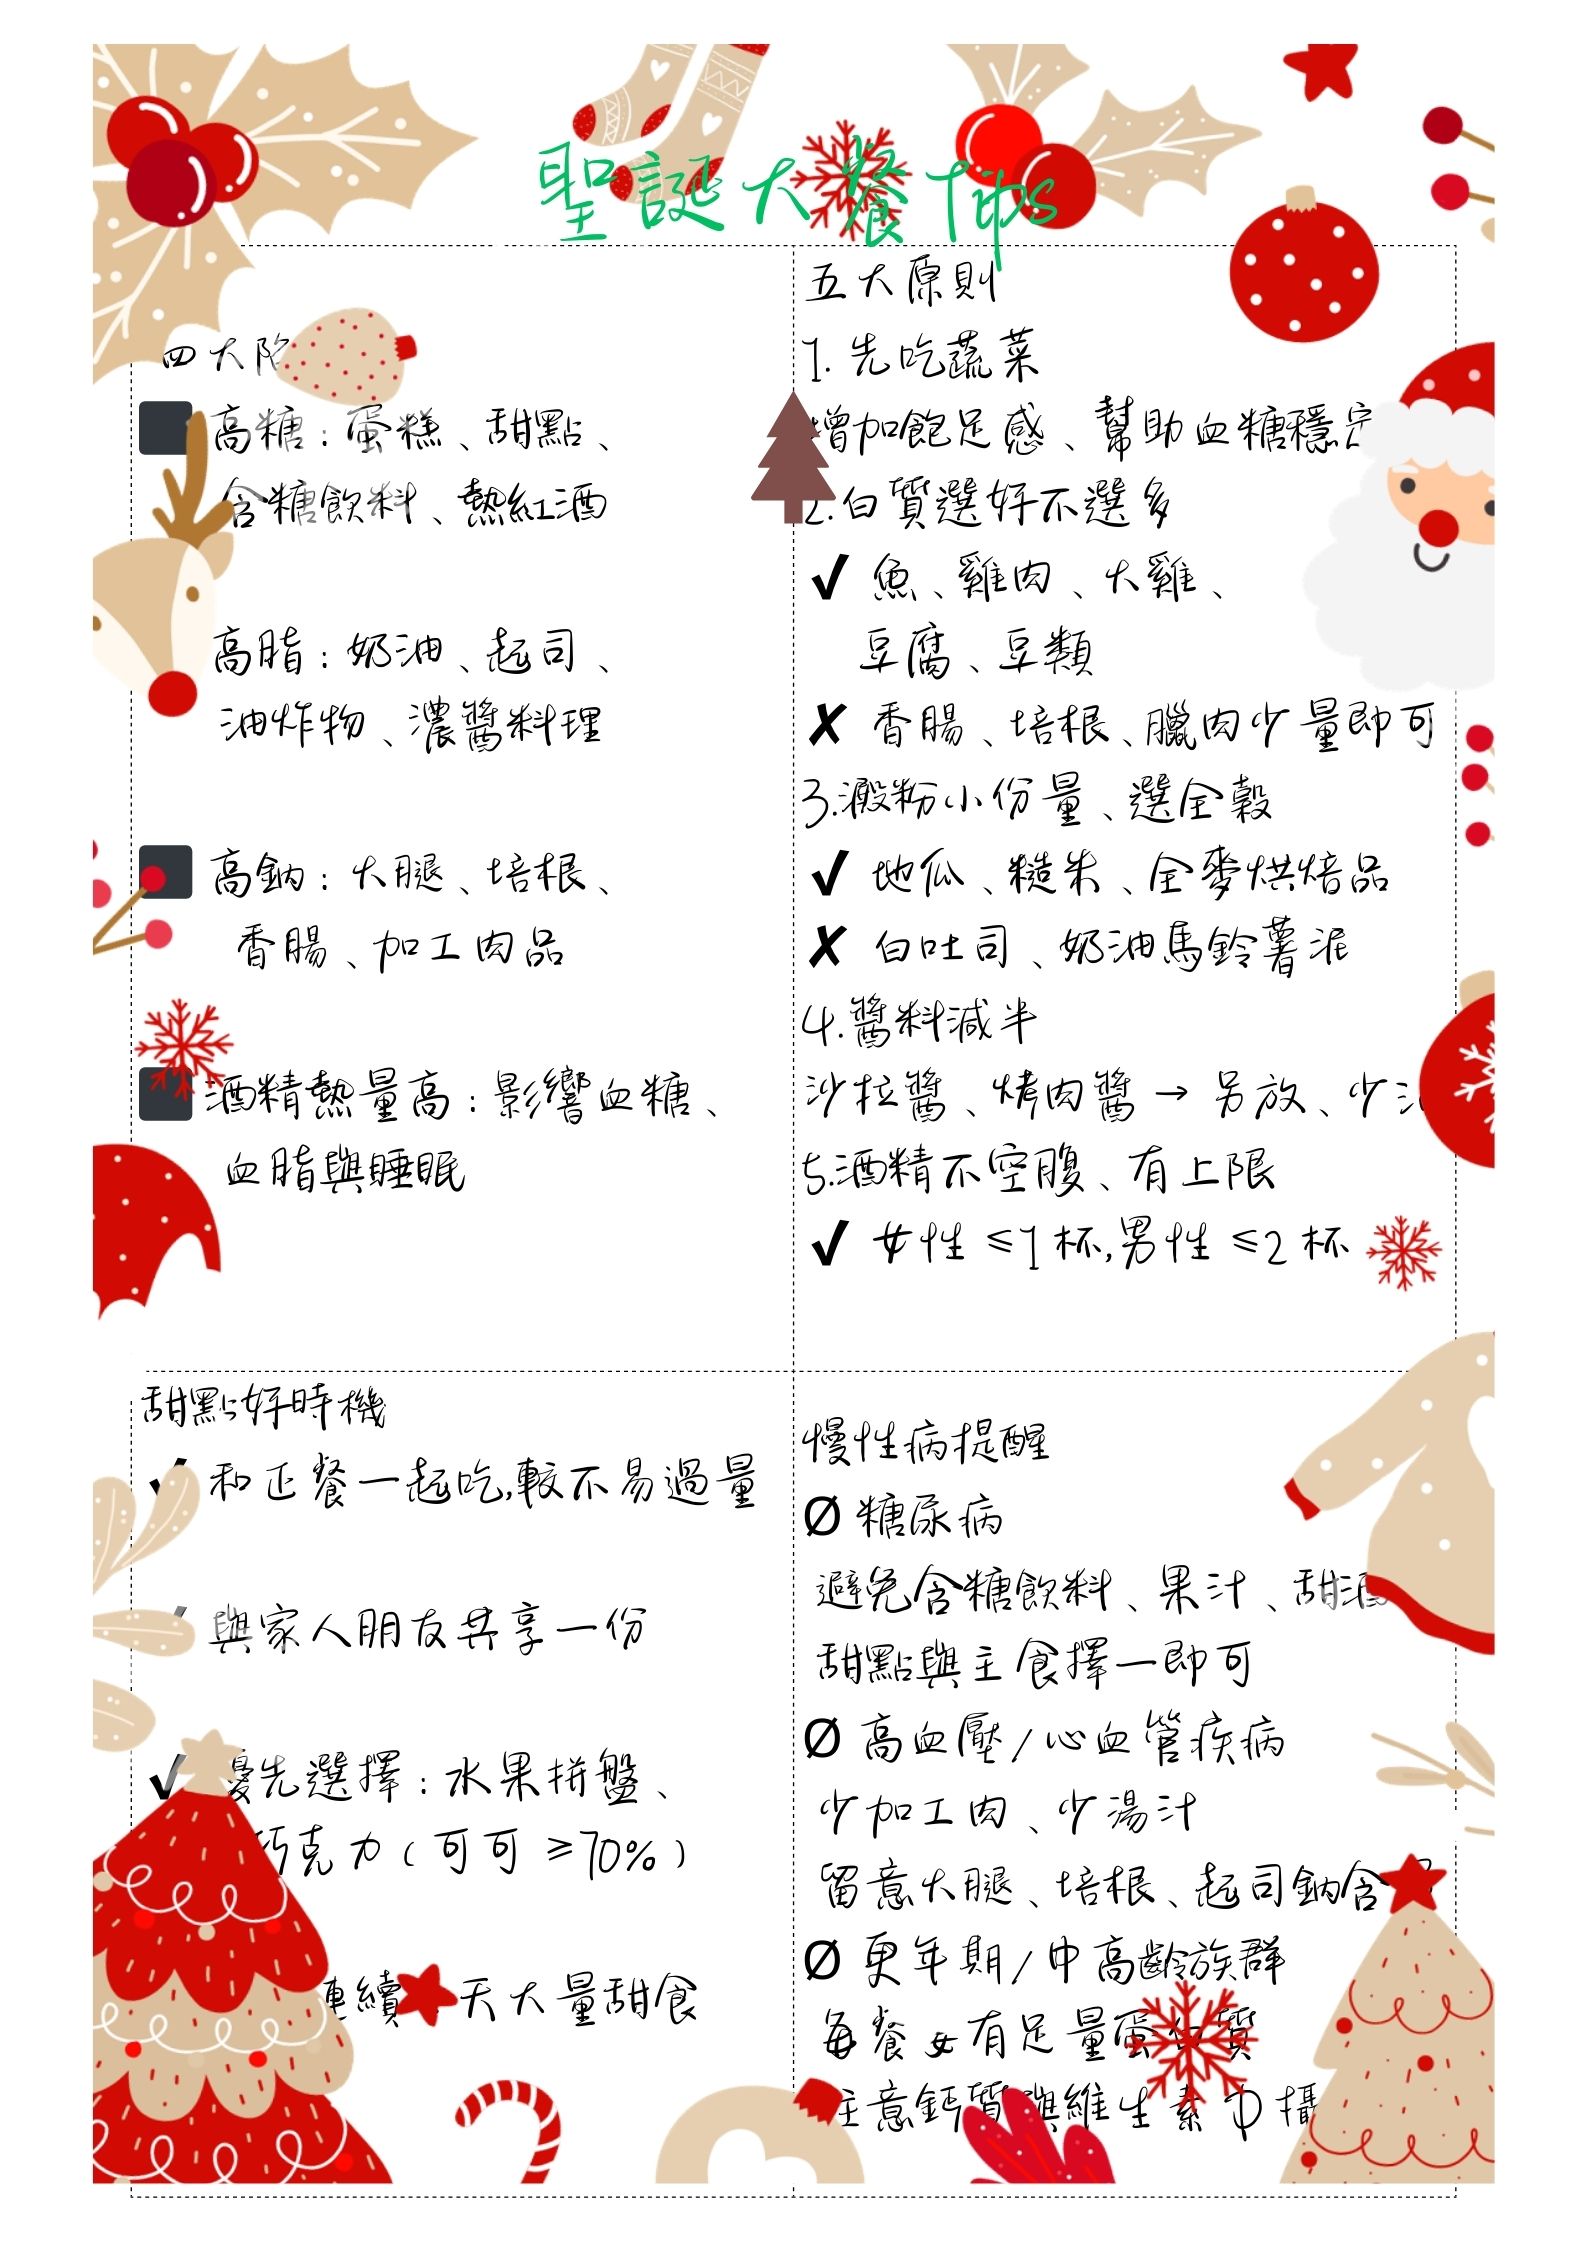 聖誕大餐Tips
四大陷
高糖：蛋糕、甜點、
含糖飲料、熱紅酒
高脂：奶油、起司、
油炸物、濃醬料理
高鈉：火腿、培根、
香腸、加工肉品
酒精熱量高：影響血糖、
血脂與睡眠
五大原則
1. 先吃蔬菜
增加飽足感、幫助血糖穩定
2.白質選好不選多
✓ 魚、雞肉、火雞、
豆腐、豆類
✗ 香腸、培根、臘肉少量即可
3.澱粉小份量、選全穀
✓ 地瓜、糙米、全麥烘焙品
✗ 白吐司、奶油馬鈴薯泥
4.醬料減半
沙拉醬、烤肉醬→ 另放、少
5.酒精不空腹、有上限
✓ 女性 ≤1 杯,男性 ≤2 杯
甜點好時機
✓ 和正餐一起吃,較不易過量
✓ 與家人朋友共享一份
✓ 優先選擇：水果拼盤、
巧克力（可可 ≥70%）
連續 天大量甜食
慢性病提醒
Ø 糖尿病
避免含糖飲料、果汁、甜酒
甜點與主食擇一即可
Ø 高血壓/心血管疾病
少加工肉、少湯汁
留意火腿、培根、起司鈉含
Ø 更年期/中高齡族群
每餐 有足量蛋白質
注意鈣質與維生素D攝